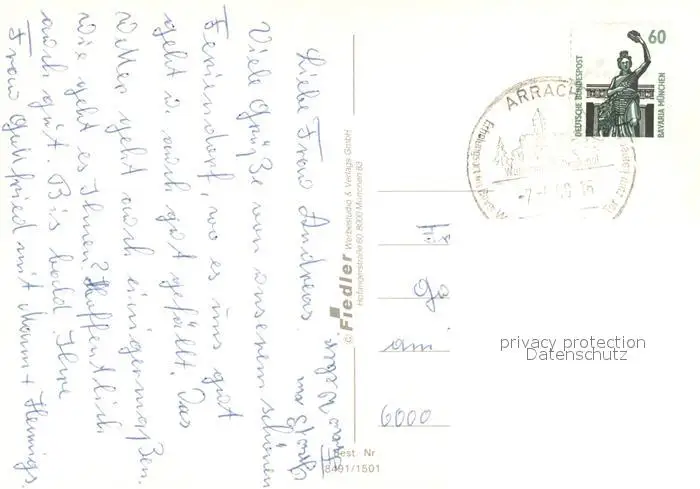 Liebe Frau Andreas.
Viele Grüße von unserem schönen
Feriendorf, wo es uns gut
geht u. auch gut gefällt. Das
Wetter geht auch einigermaßen.
Wie geht es Ihnen? Hoffentlich
auch gut. Bis bald Ihre
Frau Guttfried mit Mann +
Frau Weber.
© Fiedler Werbestudio & Verlags GmbH
Hofangerstraße 60, 8000 München 83
Best. Nr
8491/1501
60
DEUTSCHE BUNDESPOST
BAYERIA MÜNCHEN
ARRACH
am
6000
privacy protection
Datenschutz